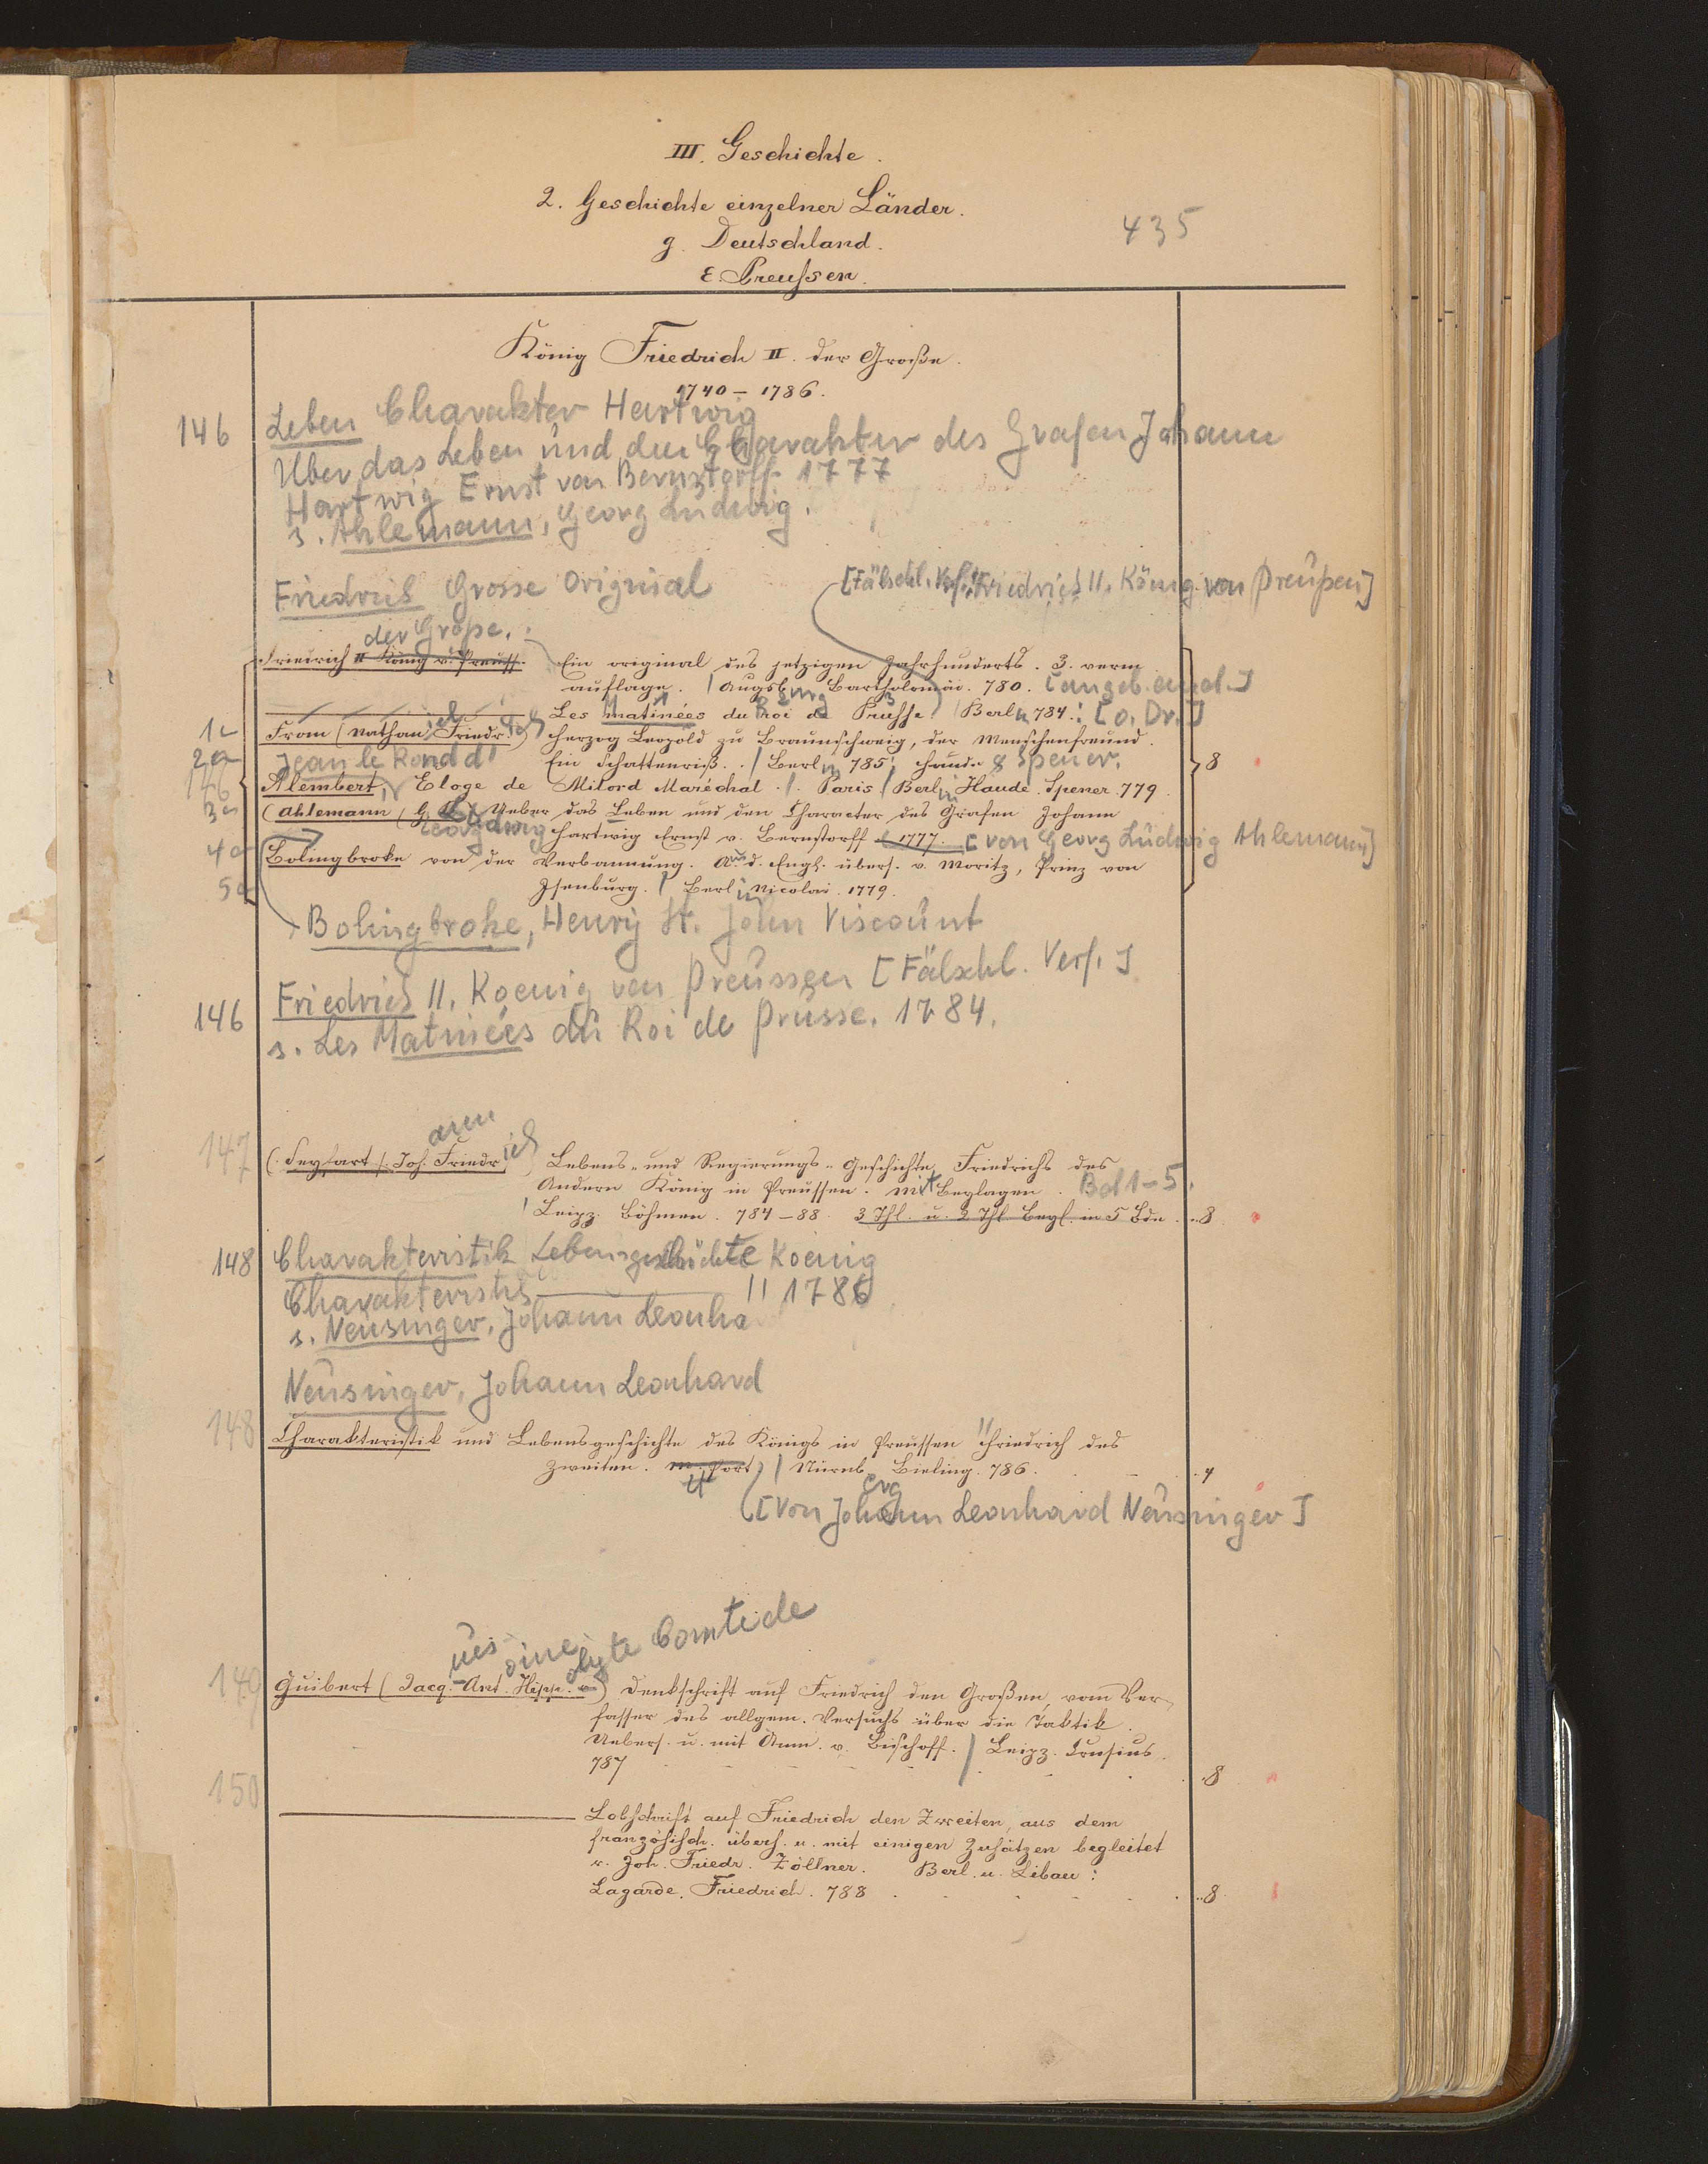 III. Geschichte.
2. Geschichte einzelner Länder.
435
g. Deutschland.
ε. Preussen.
König Friedrich II. der Große.
1740 – 1786.
146 Leben Charakter Hartwig
Über das Leben und den Charakter des Grafen Johann
Hartwig Ernst von Bernstorff 1777
s. Ahlemann, Georg Ludwig.
Friedrich Grosse Original
[Fälschl. Verf.: Friedrich II. König von Preußen]
der Große.
Friedrich II König v. Preuss. Ein original des jetzigen Jahrhunderts. 3. verm
auflage. / Augsburg Bartholomäi. 780. [angeb. and.]
Les Matinées du Roi de Prusse / Berlin 784.: [o. Dr.]
1a From (Nathaniel Friedrich) Herzog Leopold zu Braunschweig, der Menschenfreund.
2a Jean le Rond d' Ein Schattenriß. / Berlin 785; Haude & Spener. 8
146 Alembert, Eloge de Milord Maréchal. /. Paris / Berlin Haude. Spener. 779.
3a (Ahlemann (G. L.) Ueber das Leben und den Character des Grafen Johann
Georg Ludwig Hartwig Ernst v. Bernstorff 1777. [von Georg Ludwig Ahlemann]
4a Bolingbroke von der Verbannung. Aus d. Engl. übers. v. Moritz, Prinz von
5a Isenburg. / Berlin Nicolai. 1779.
Bolingbroke, Henry St. John Viscount
Friedrich II. Koenig von Preussen [Fälschl. Verf.]
146 s. Les Matinées du Roi de Prusse. 1784.
ann
147 (Seyfart /: Joh. Friedrich) Lebens- und Regierungs-Geschichte Friedrichs des
Andern König in Preussen. mit Beylagen. Bd 1–5.
/ Leipz. Böhmen. 784–88. 3 Thl. u. 2 Thl Beyl. in 5 Bdn. 8
148 Charakteristik Lebensgeschichte Koenig
Charakteristik ——— II 1786
s. Neusinger, Johann Leonhard
Neusinger, Johann Leonhard
148 Charakteristik und Lebensgeschichte des Königs in Preussen Friedrich des
Zweiten. m. Port. / Nürnberg Bieling. 786. 4
[von Johann Leonhard Neusinger]
ues oine olyte Comte de
149 Guibert (Jacq. Ant. Hipp. v.) Denkschrift auf Friedrich den Großen, vom Ver-
fasser des allgem. Versuchs über die Taktik.
Uebers. u. mit Anm. v. Bischoff. / Leipz. Crusius.
787 8
150 ——— Lobschrift auf Friedrich den Zweiten, aus dem
französisch. übers. u. mit einigen Zusätzen begleitet
v. Joh. Friedr. Zöllner. Berl. u. Libau:
Lagarde. Friedrich. 788 8